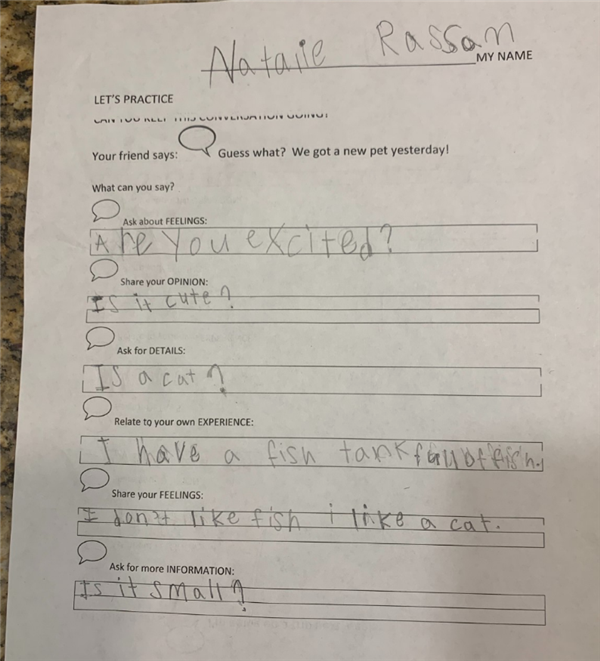 Natalie Rassan
MY NAME
LET'S PRACTICE
CAN YOU KEEP THIS CONVERSATION GOING?
Your friend says: Guess what? We got a new pet yesterday!
What can you say?
Ask about FEELINGS:
Are you excited?
Share your OPINION:
Is it cute?
Ask for DETAILS:
Is a cat?
Relate to your own EXPERIENCE:
I have a fish tank full of fish.
Share your FEELINGS:
I don't like fish i like a cat.
Ask for more INFORMATION:
Is it small?